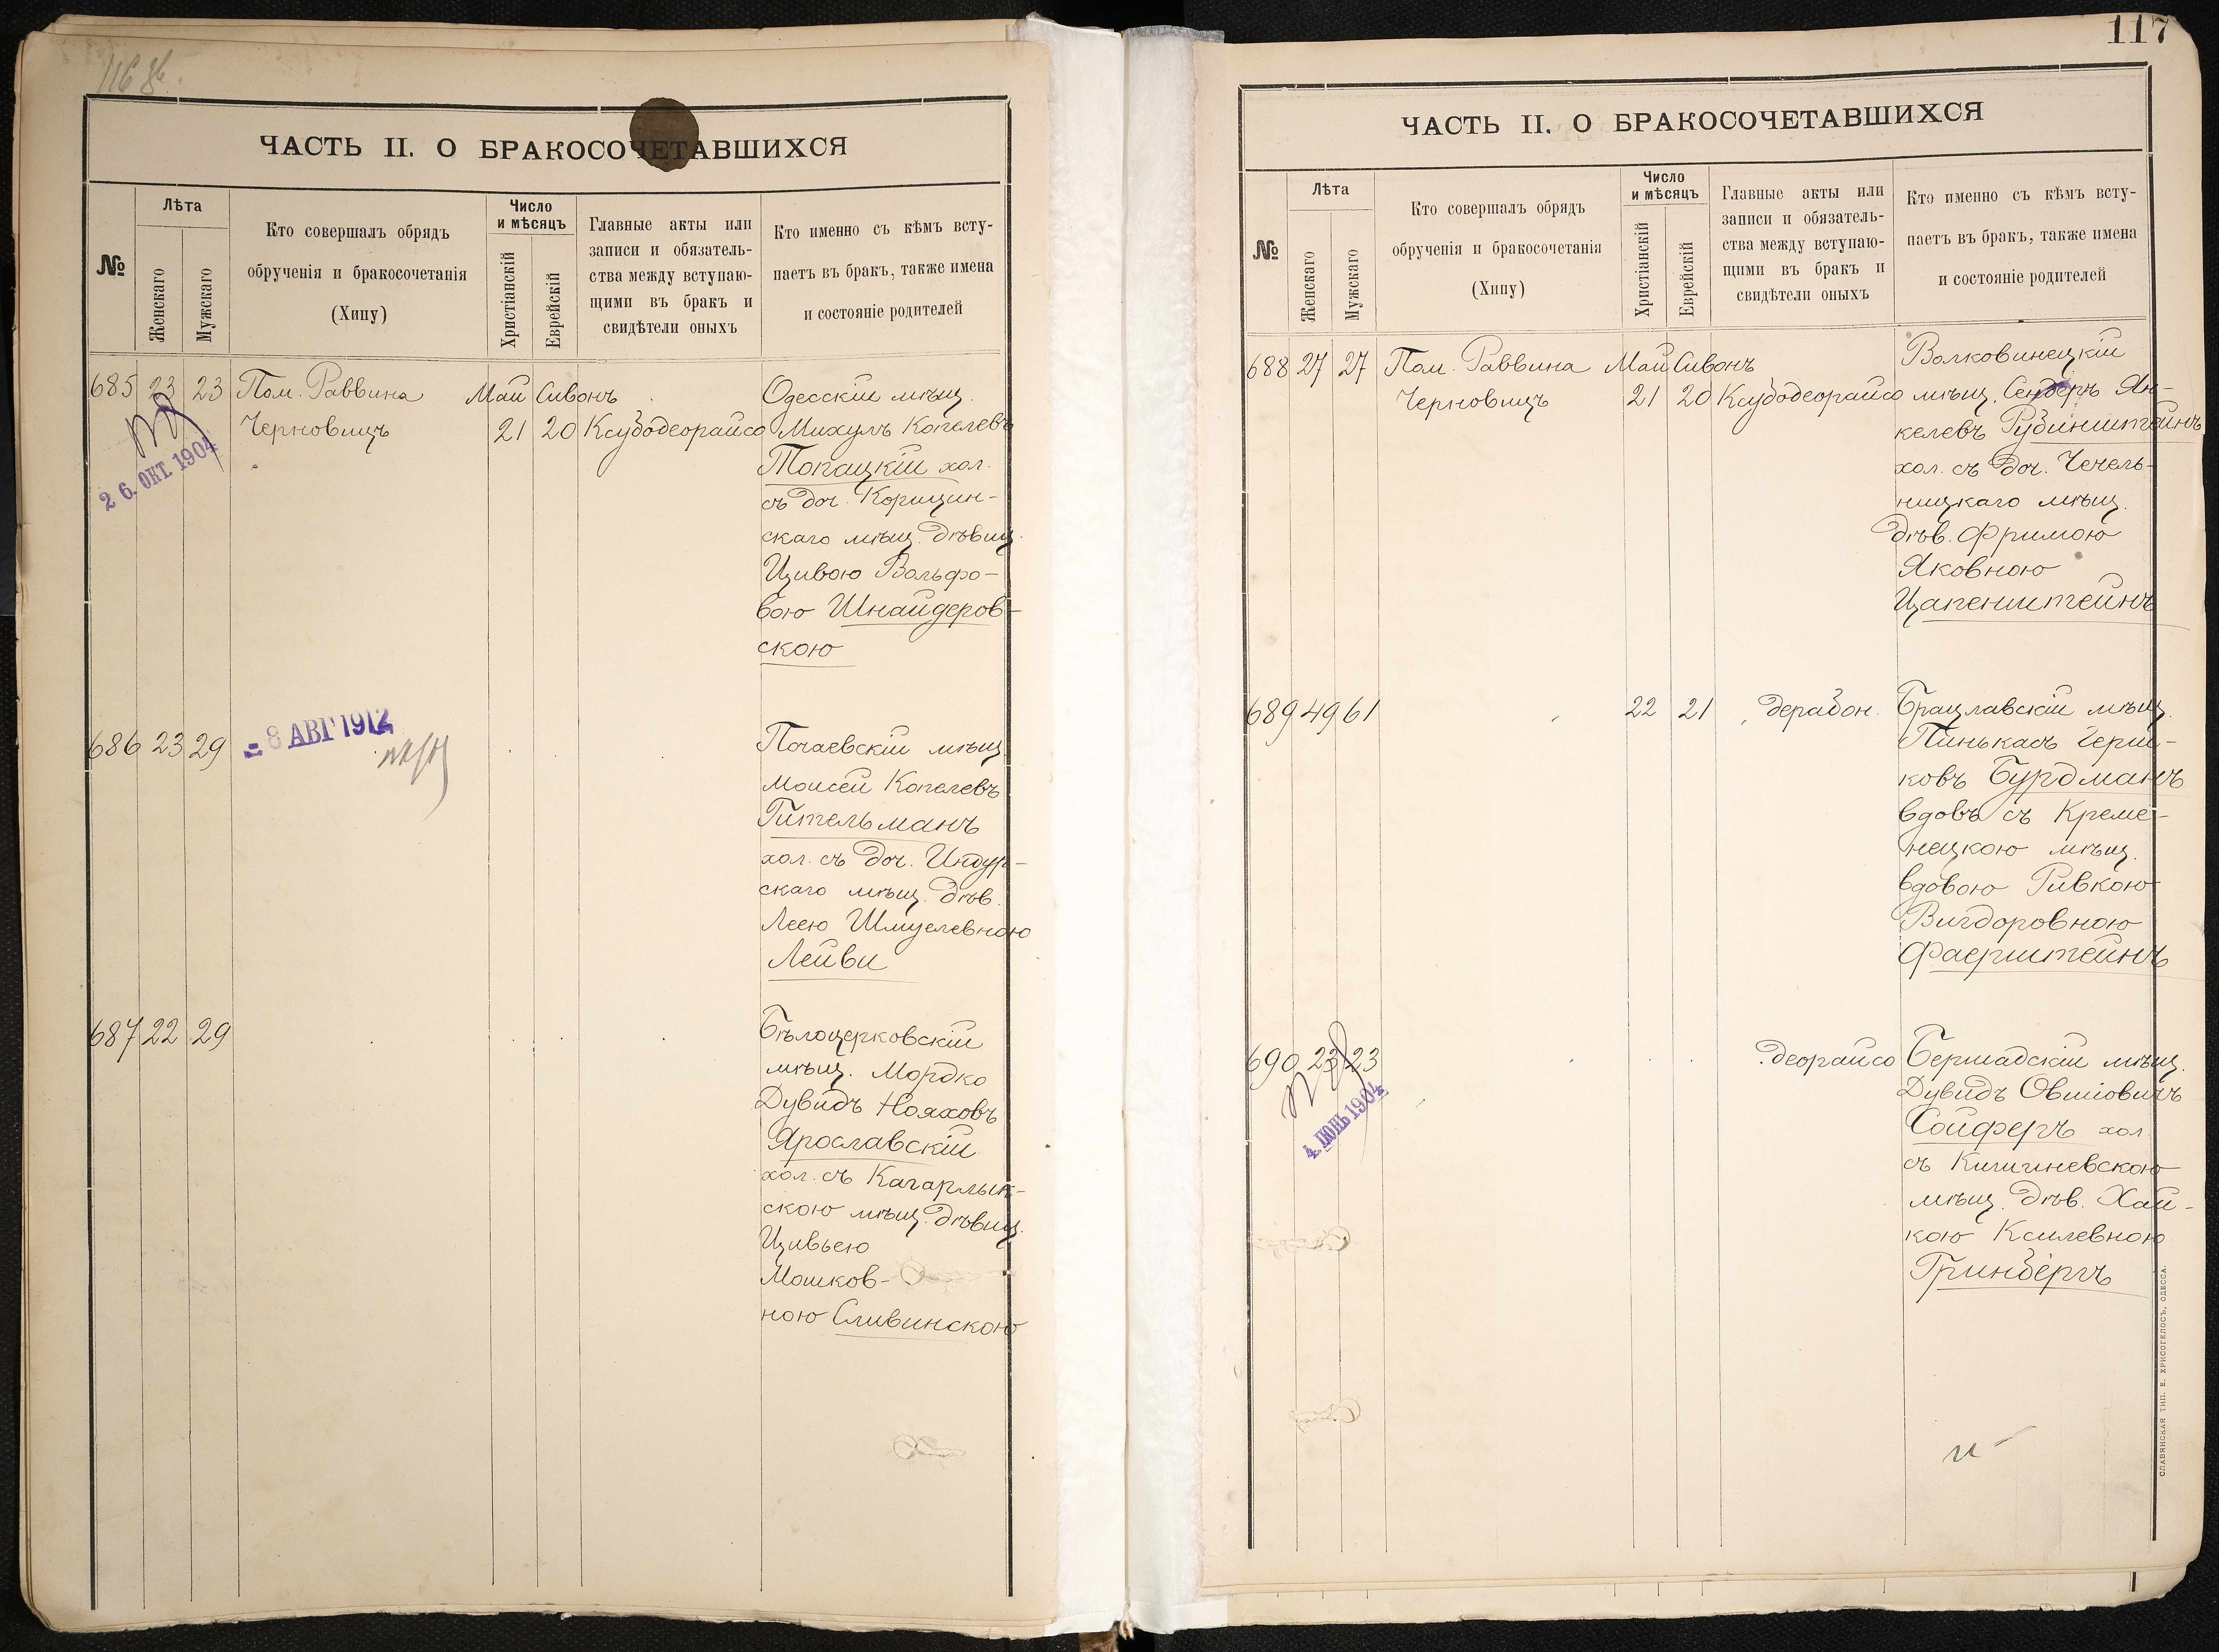 116 об.
ЧАСТЬ II. О БРАКОСОЧЕТАВШИХСЯ
№
Лѣта
Женскаго
Мужскаго
Кто совершалъ обрядъ
обрученія и бракосочетанія
(Хипу)
Число
и мѣсяцъ
Христіанскій
Еврейскій
Главные акты или
записи и обязатель-
ства между вступаю-
щими въ бракъ и
свидѣтели оныхъ
Кто именно съ кѣмъ всту-
паетъ въ бракъ, также имена
и состояніе родителей
685 23 23 Пом. Раввина Май Сивонъ Одесскій мѣщ.
Черновицъ 21 20 Ксубодеорайсо Михуль Копелевъ
Топацкій хол.
съ доч. Корицин-
скаго мѣщ. дѣвиц.
Цивою Вольфо-
вою Шнайдеров-
скою
26. ОКТ. 1904
686 23 29 Почаевскій мѣщ.
= 8 АВГ 1912
Моисей Копелевъ
Гительманъ
хол. съ доч. Индур-
скаго мѣщ. дѣв.
Леею Шмулевною
Лейви
687 22 29 Бѣлоцерковскій
мѣщ. Мордко
Дувидъ Нояховъ
Ярославскій
хол. съ Кагарлык-
скою мѣщ. дѣвиц.
Цивьею
Мошков-
ною Сливинскою
117
ЧАСТЬ II. О БРАКОСОЧЕТАВШИХСЯ
№
Лѣта
Женскаго
Мужскаго
Кто совершалъ обрядъ
обрученія и бракосочетанія
(Хипу)
Число
и мѣсяцъ
Христіанскій
Еврейскій
Главные акты или
записи и обязатель-
ства между вступаю-
щими въ бракъ и
свидѣтели оныхъ
Кто именно съ кѣмъ всту-
паетъ въ бракъ, также имена
и состояніе родителей
688 27 27 Пом. Раввина Май Сивонъ Волковинецкій
Черновицъ 21 20 Ксубодеорайсо мѣщ. Сендеръ Ян-
келевъ Рубинштейнъ
хол. съ доч. Чечель-
ницкаго мѣщ.
дѣв. Фримою
Яковною
Цапенштейнъ
689 49 61 22 21 дерабон. Брацлавскій мѣщ.
Пинькасъ Герш-
ковъ Бурдманъ
вдовъ съ Креме-
нецкою мѣщ.
вдовою Ривкою
Вигдоровною
Фаерштейнъ
690 23 23 деорайсо Бершадскій мѣщ.
Дувидъ Овшіовичъ
Сойферъ хол.
съ Кишиневскою
мѣщ. дѣв. Хай-
кою Ксилевною
Гринбергъ
4. ІЮНЬ 1904
СЛАВЯНСКАЯ ТИП. Е. ХРИСОГЕЛОСЪ, ОДЕССА.